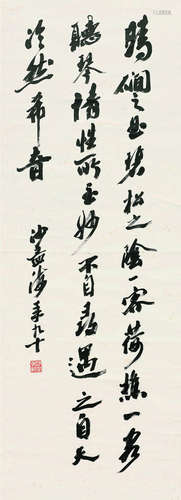 晴磵之曲碧松之陰一客荷樵一客
聽琴情性所至妙不自尋遇之自天
泠然希音
沙孟海年九十